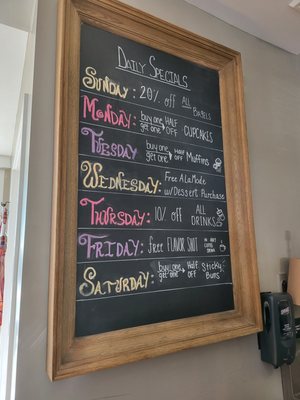 Daily Specials
Sunday: 20% off ALL Bagels
Monday: buy one get one HALF OFF CUPCAKES
Tuesday buy one, get one Half off Muffins
Wednesday: Free AlaMode w/Dessert Purchase
Thursday: 10% off ALL DRINKS
Friday: free FLAVOR SHOT IN ANY COFFEE DRINK
Saturday: buy one get one Half Off Sticky Buns